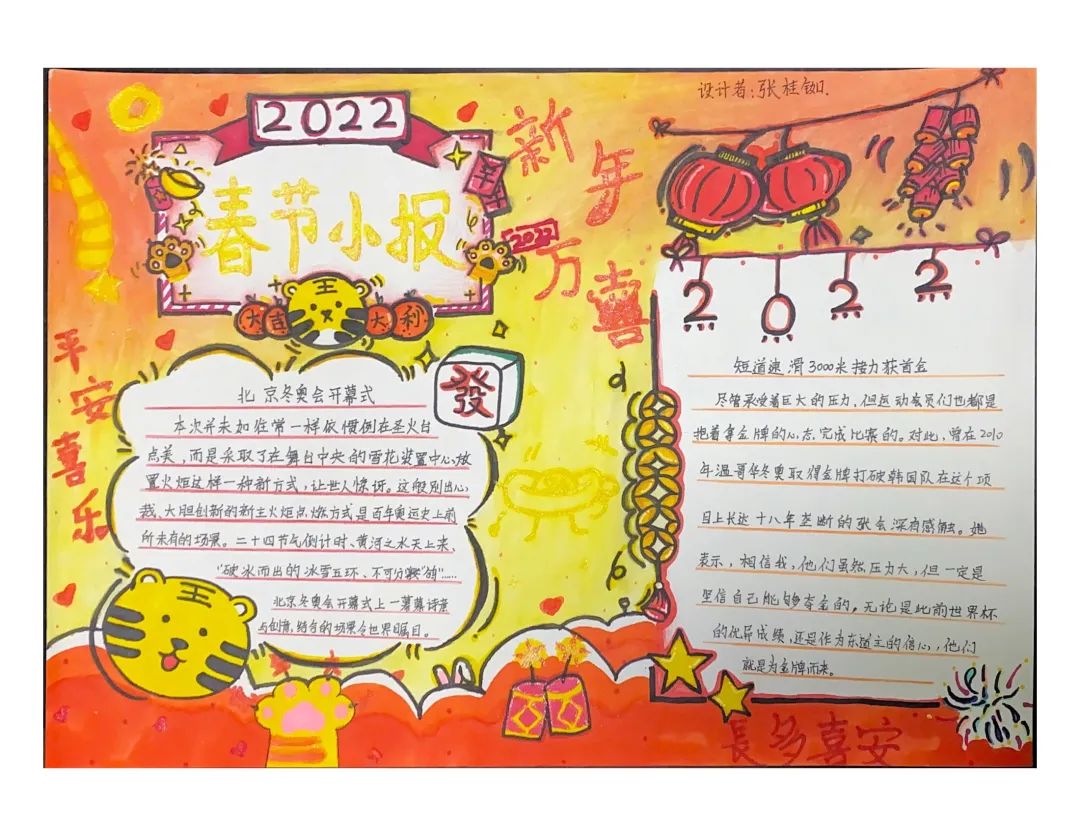 设计者:张桂如.
2022
春节小报
大吉
大利
王
新年万喜
2022
平安喜乐
發
2022
北京冬奥会开幕式
本次并未如往常一样依惯例在圣火台
点美,而是采取了在舞台中央的雪花装置中心放
置火炬这样一种新方式,让世人惊讶。这般别出心
裁、大胆创新的新主火炬点燃方式是百年奥运史上前
所未有的场景。二十四节气倒计时、黄河之水天上来、
"破冰而出的冰雪五环、不可分
北京冬奥会开幕式上一幕幕诗意
与创意结合的场景令世界瞩目。
王
短道速滑3000米接力获首金
尽管承受着巨大的压力,但运动会员们也都是
抱着拿金牌的心态完成比赛的。对此,曾在2010
年温哥华冬奥取得金牌打破韩国队在这个项
目上长达十八年垄断的张会深有感触。她
表示,相信我,他们虽然压力大,但一定是
坚信自己能够夺金的。无论是此前世界杯
的优异成绩,还是作为东道主的信心,他们
就是为金牌而来。
長多喜安